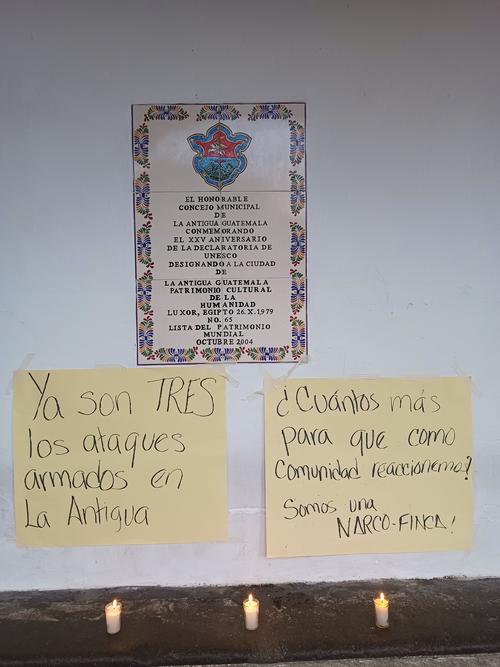 EL HONORABLE
CONCEJO MUNICIPAL
DE
LA ANTIGUA GUATEMALA
CONMEMORANDO
EL XXV ANIVERSARIO
DE LA DECLARATORIA DE
UNESCO
DESIGNANDO A LA CIUDAD
DE
LA ANTIGUA GUATEMALA
PATRIMONIO CULTURAL
DE LA
HUMANIDAD
LUXOR, EGIPTO 26.X.1979
NO. 65
LISTA DEL PATRIMONIO
MUNDIAL
OCTUBRE 2004
Ya son TRES
los ataques
armados en
La Antigua
¿Cuántos más
para que como
Comunidad reaccionemos?
Somos una
NARCO-FINCA!